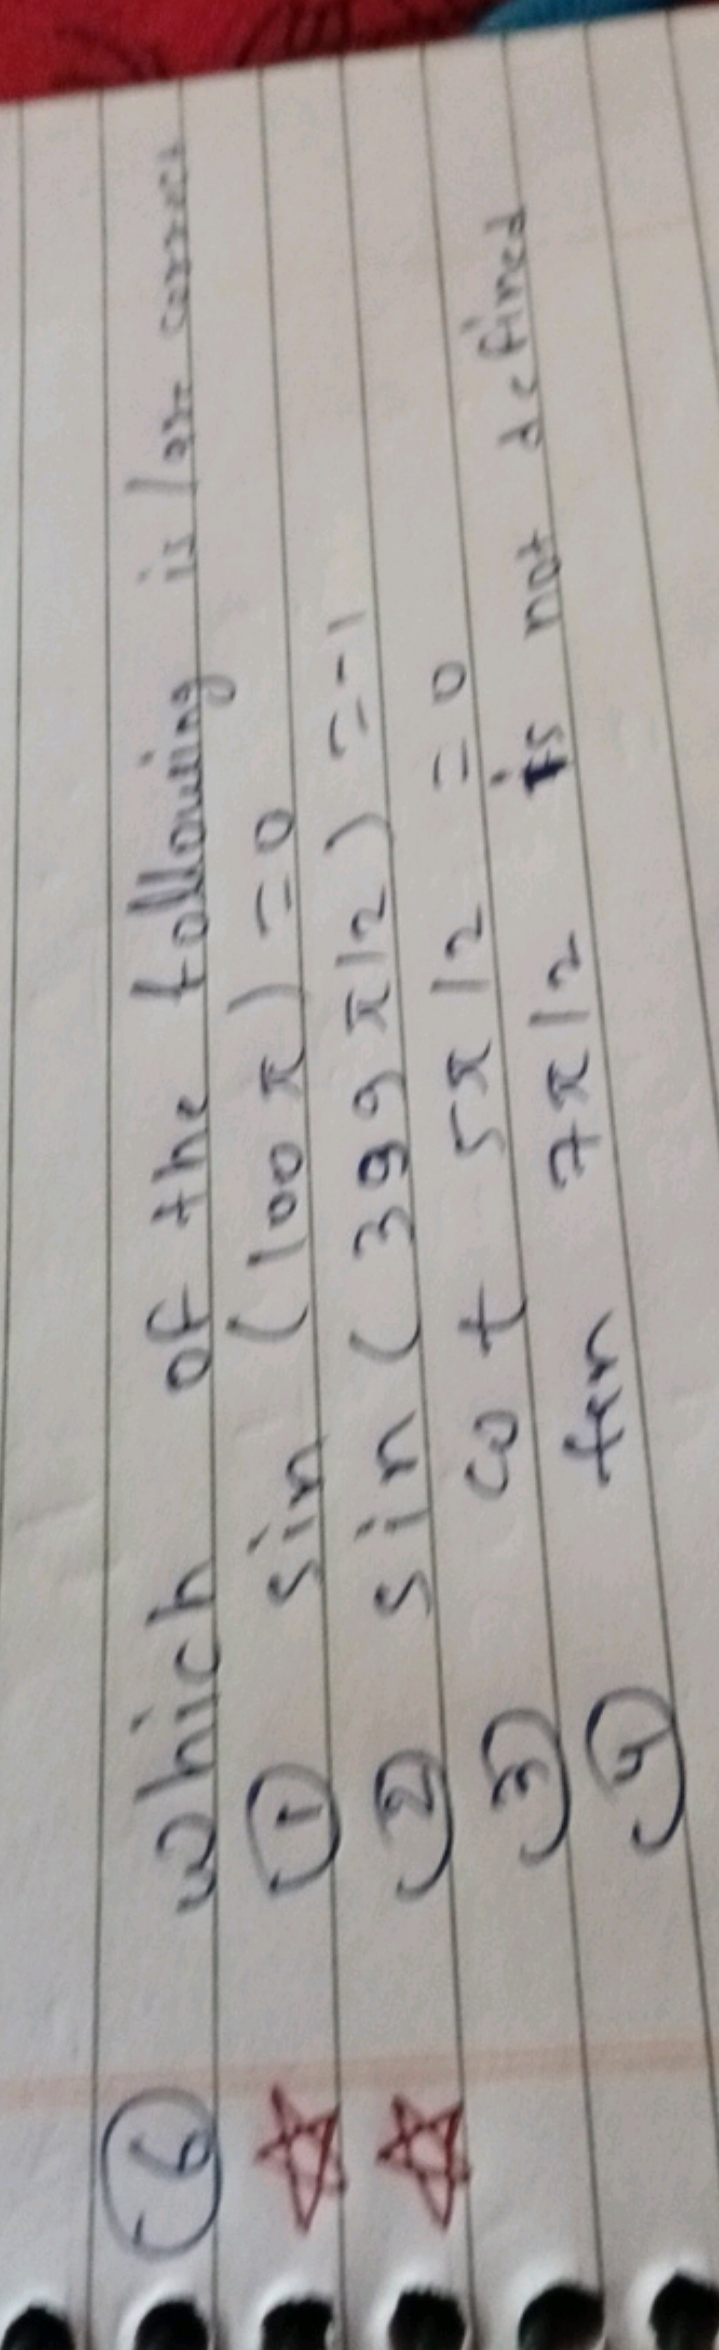 6 which of the following is/are correct
1 sin (100 π) = 0
2 sin (399 π/2) = -1
3 cot 5π/2 = 0
4 tan 7π/2 is not defined